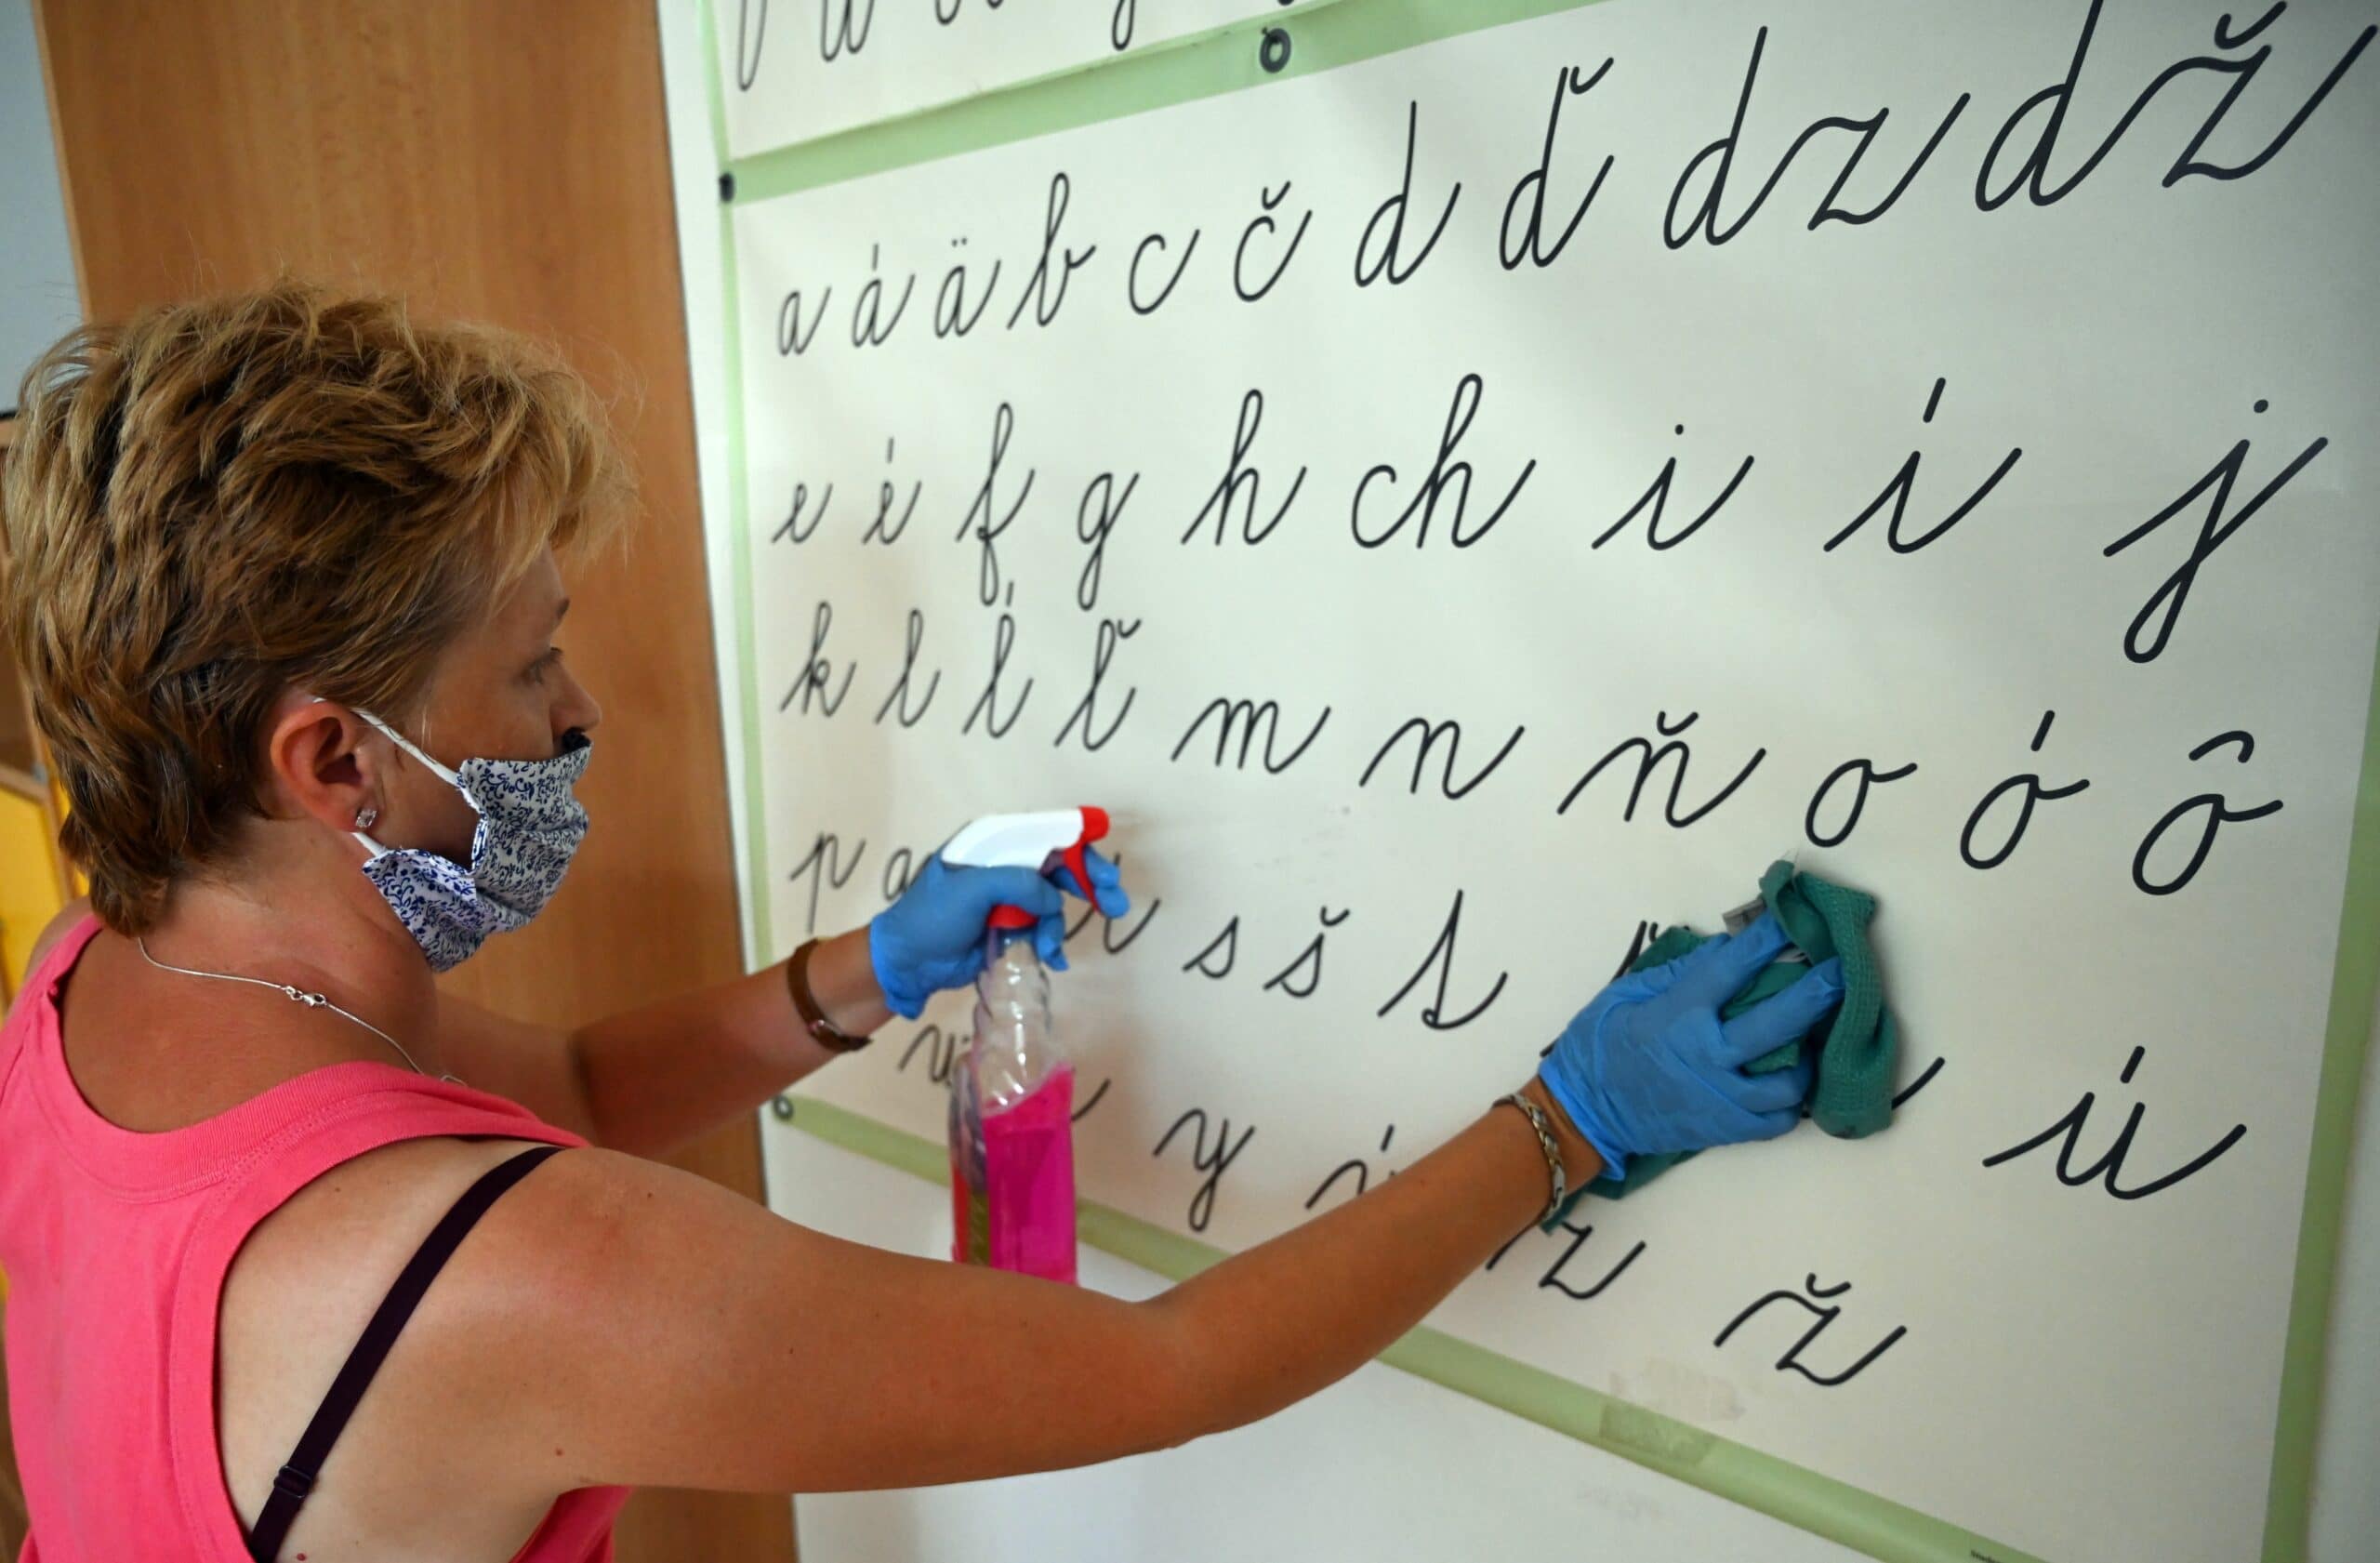 a á ä b c č d ď dz dž
e é f g h ch i í j
k l ĺ ľ m n ň o ó ô
p s š t ú
v y z ž